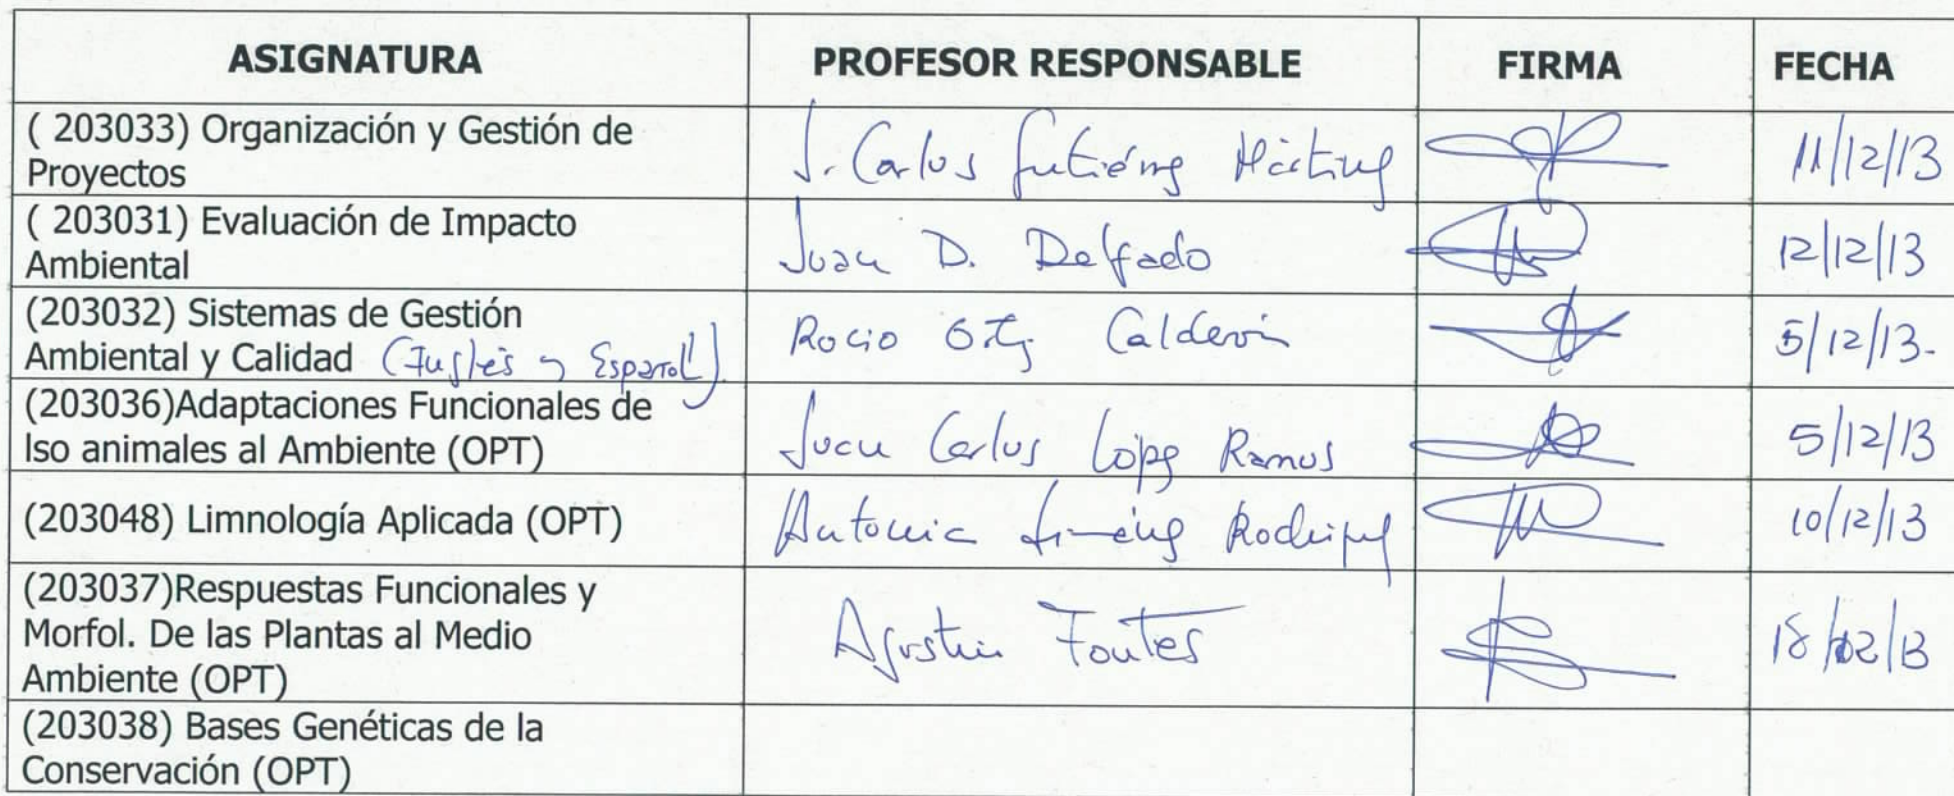 ASIGNATURA PROFESOR RESPONSABLE FIRMA FECHA
( 203033) Organización y Gestión de
Proyectos
J. Carlos Gutiérrez Martínez 11/12/13
( 203031) Evaluación de Impacto
Ambiental
Juan D. Delgado 12/12/13
(203032) Sistemas de Gestión
Ambiental y Calidad (Inglés y Español)
Rocio Ortiz Calderón 5/12/13.
(203036)Adaptaciones Funcionales de
lso animales al Ambiente (OPT)
Juan Carlos López Ramos 5/12/13
(203048) Limnología Aplicada (OPT) Antonia Jiménez Rodríguez 10/12/13
(203037)Respuestas Funcionales y
Morfol. De las Plantas al Medio
Ambiente (OPT)
Agustin Fontes
(203038) Bases Genéticas de la
Conservación (OPT)